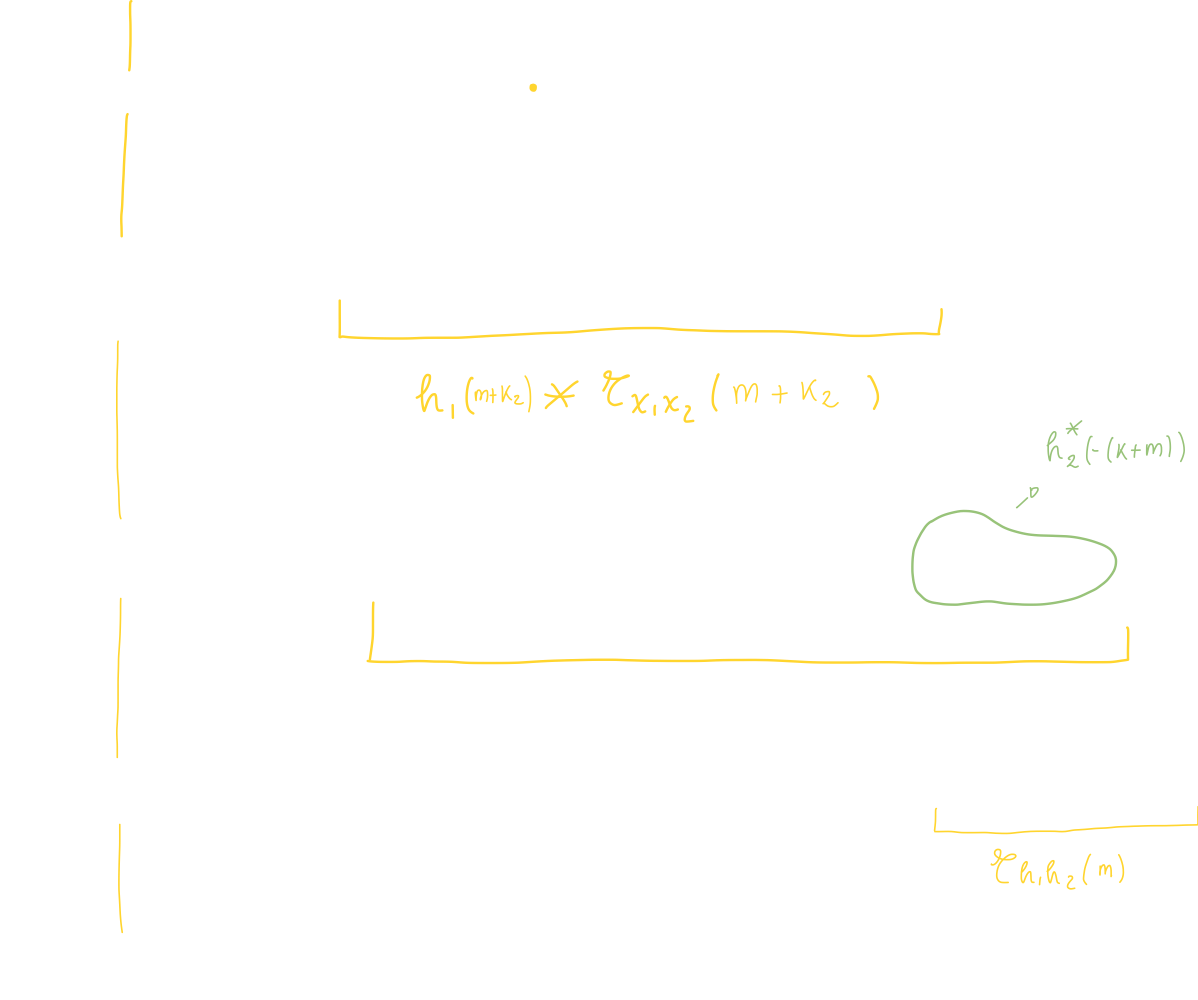 h₁(m+K₂) * r_{x₁x₂}(m + K₂)
h₂*(-(K+m))
r_{h₁h₂}(m)